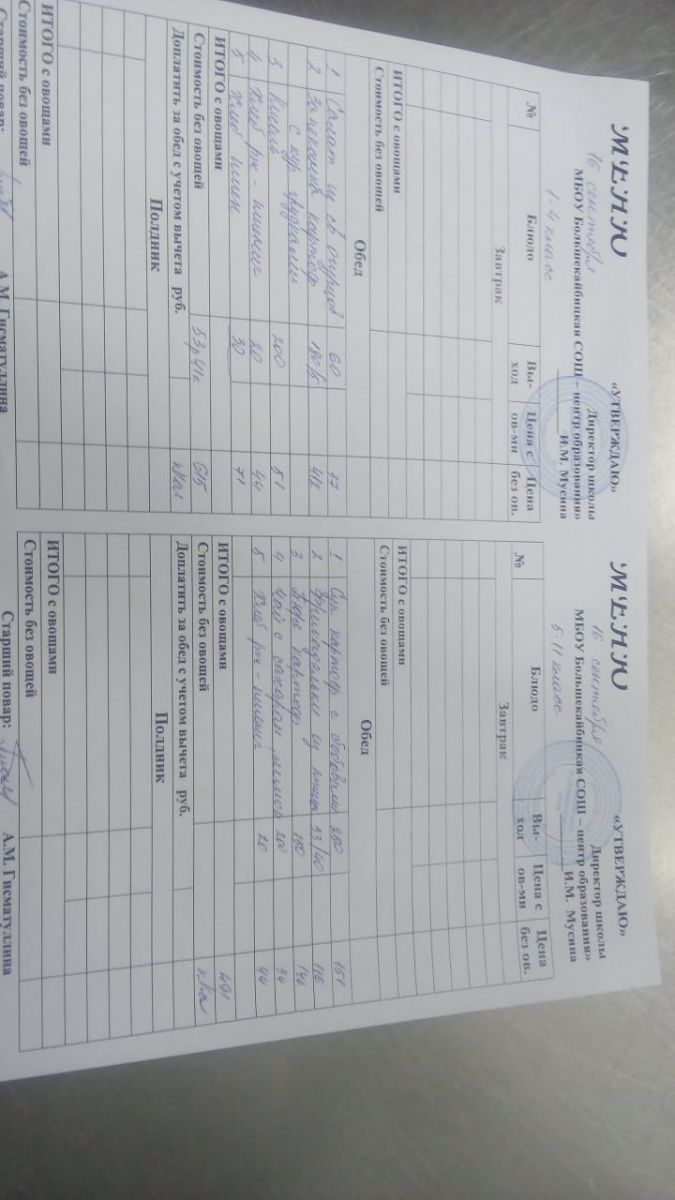 МЕНЮ
«УТВЕРЖДАЮ»
Директор школы
МБОУ Большекайбицкая СОШ – центр образования»
16 сентября И.М. Мусина
1-4 класс
№ Блюдо Вы-ход Цена с ов-ми Цена без ов.
Завтрак
ИТОГО с овощами
Стоимость без овощей
Обед
1 Салат из св огурцов 60 37
2 картоф 412
с кур
3 Кисель 200 51
4 Хлеб рж - пшенич 20 44
5 Хлеб пшен 30 71
ИТОГО с овощами
Стоимость без овощей 53р41к 615
Доплатить за обед с учетом вычета руб. ккал
Полдник
ИТОГО с овощами
Стоимость без овощей
Старший повар: А.М. Гисматуллина
МЕНЮ
«УТВЕРЖДАЮ»
Директор школы
МБОУ Большекайбицкая СОШ – центр образования»
16 сентября И.М. Мусина
5-11 класс
№ Блюдо Вы-ход Цена с ов-ми Цена без ов.
Завтрак
ИТОГО с овощами
Стоимость без овощей
Обед
1 Суп картоф с бобовыми 250 151
2 Фрикадельки из птицы 116
3 Пюре картоф 150
4 Чай с сахаром, лимон 200 34
5 Хлеб рж - пшенич 20 44
ИТОГО с овощами 491
Стоимость без овощей ккал
Доплатить за обед с учетом вычета руб.
Полдник
ИТОГО с овощами
Стоимость без овощей
Старший повар: А.М. Гисматуллина